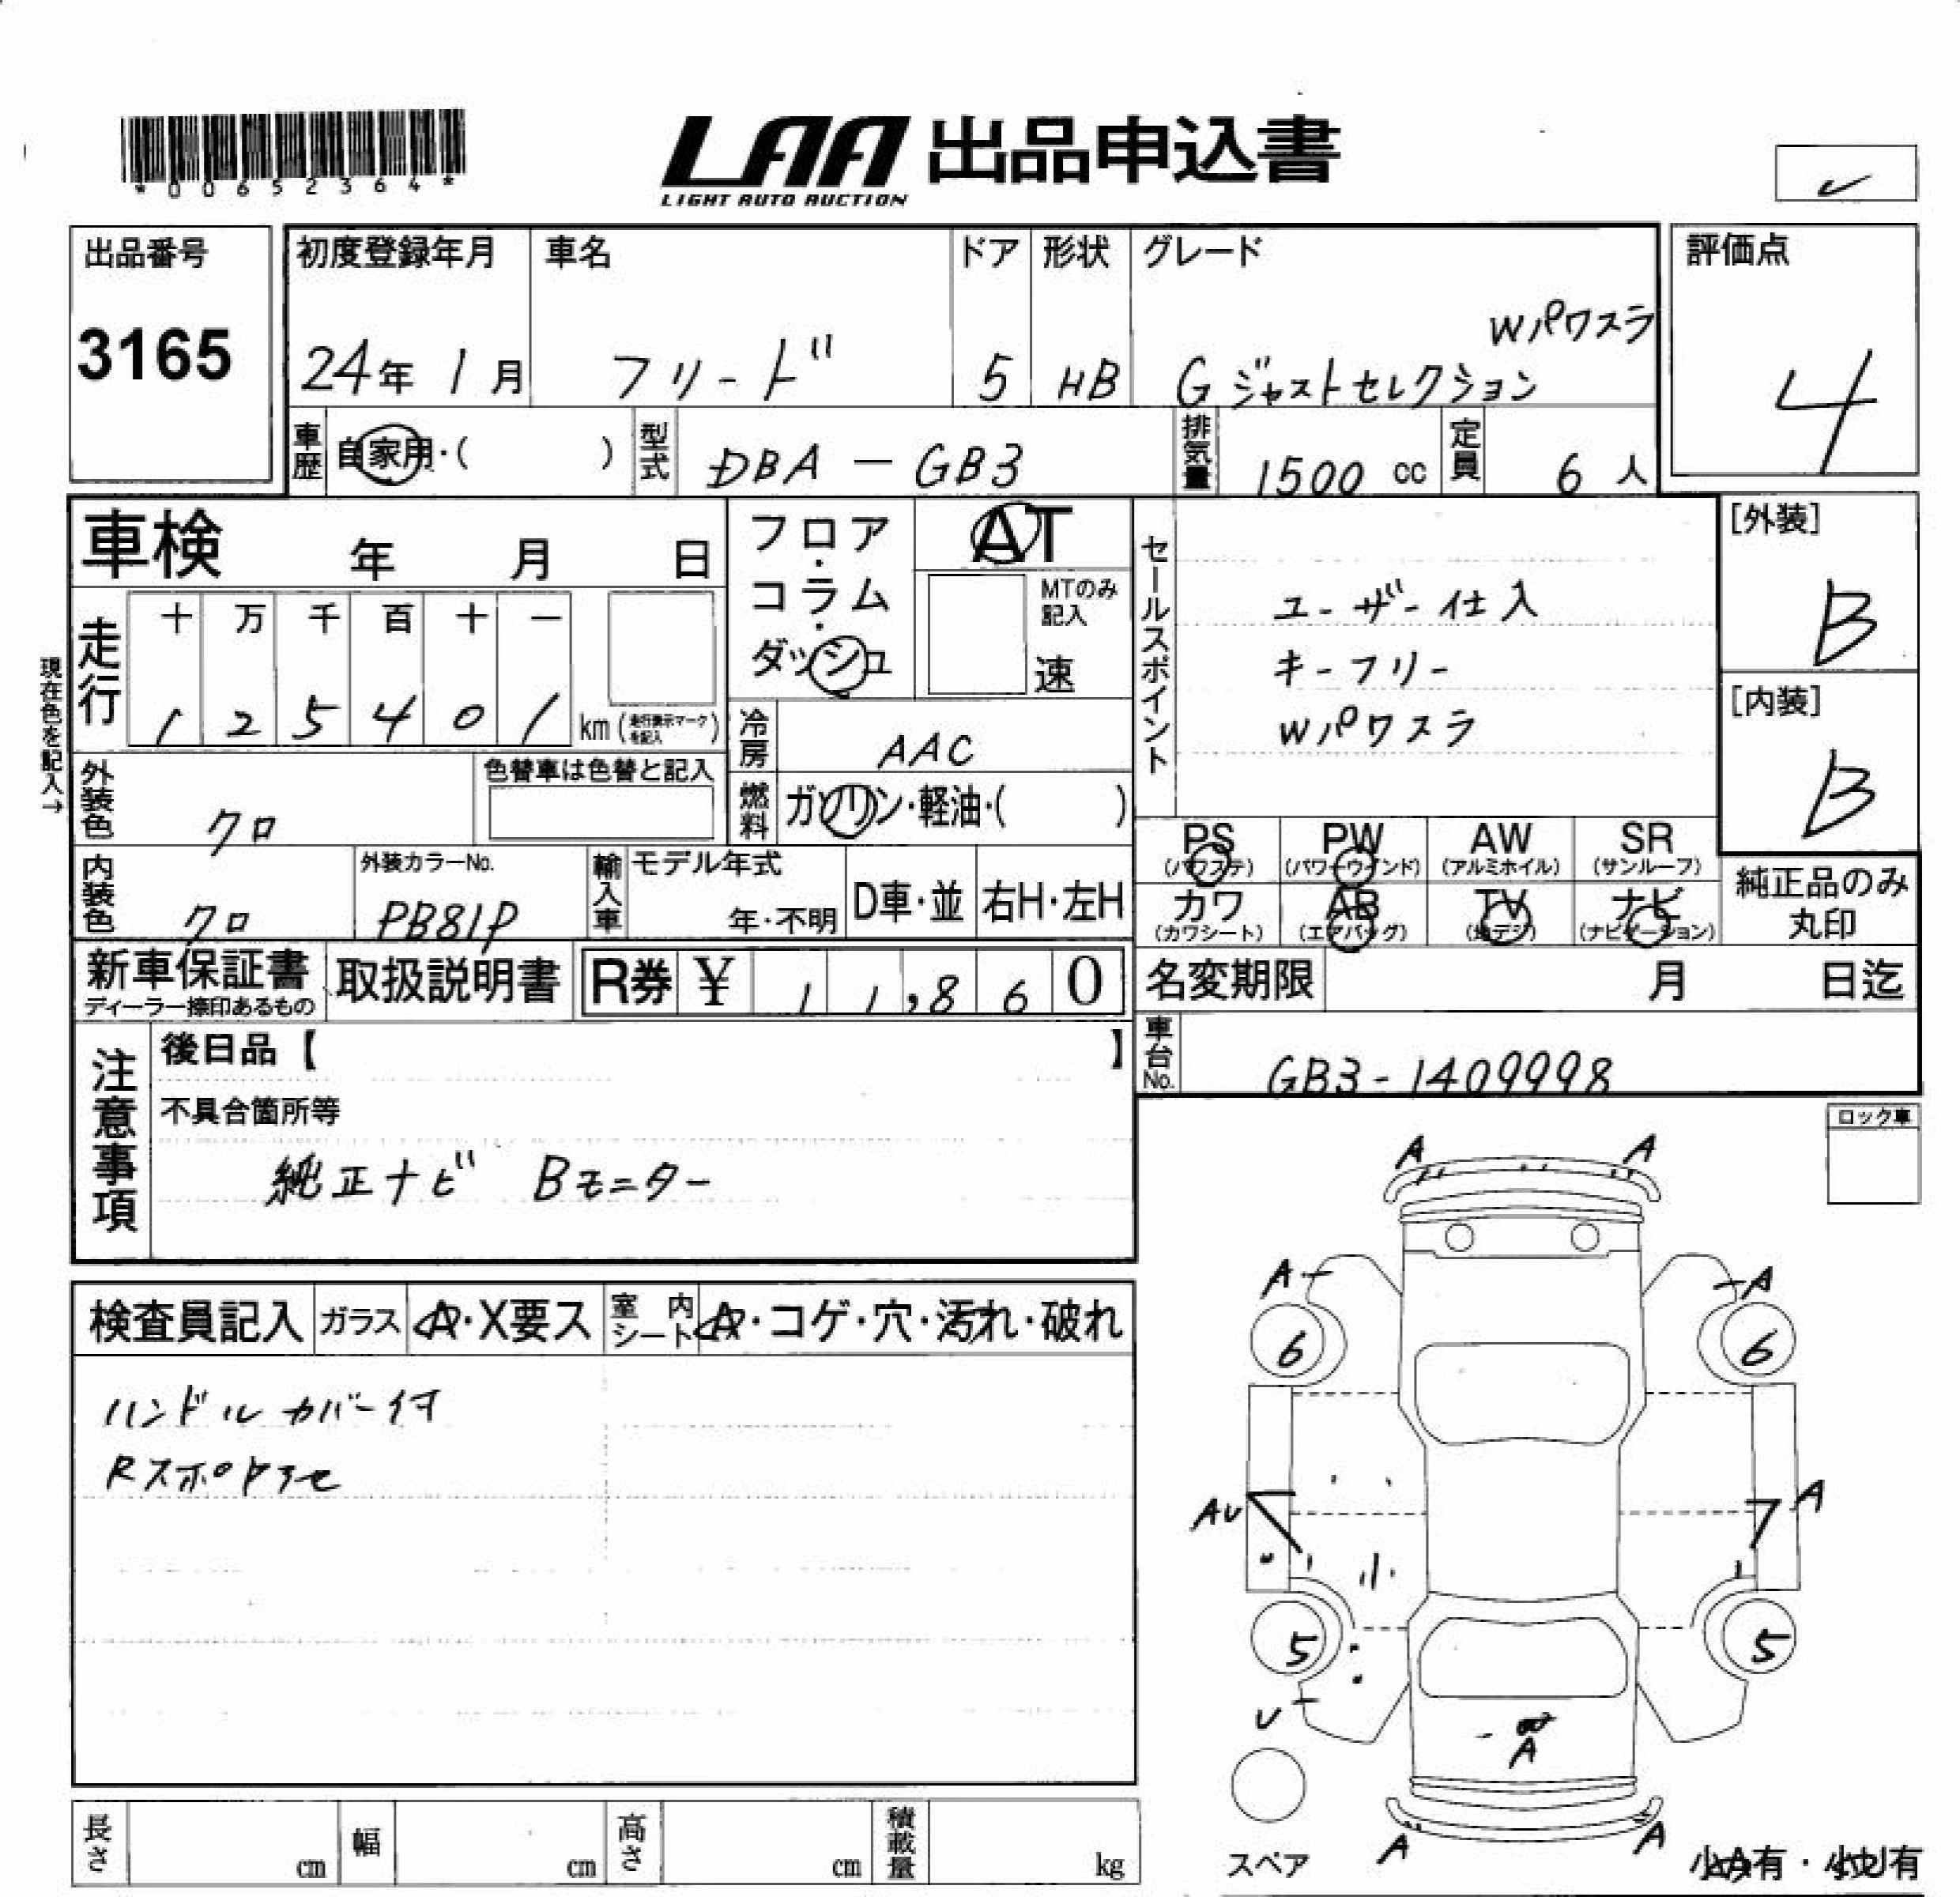 *00652364*
LAA 出品申込書
LIGHT AUTO AUCTION
出品番号
3165
初度登録年月
24年 1月
車名
フリード
ドア
5
形状
HB
グレード
Wパワスラ
G ジャストセレクション
評価点
4
車歴
自家用・( )
型式
DBA - GB3
排気量
1500 cc
定員
6 人
車検 年 月 日
フロア・コラム・ダッシュ
AT
MTのみ記入
速
セールスポイント
ユーザー仕入
キーフリー
Wパワスラ
[外装]
B
[内装]
B
現在色を記入→
走行
十 万 千 百 十 一
1 2 5 4 0 1
km (走行表示マークを記入)
冷房
AAC
燃料
ガソリン・軽油・( )
外装色
クロ
色替車は色替と記入
内装色
クロ
外装カラーNo.
PB81P
輸入車
モデル年式
年・不明
D車・並
右H・左H
PS
(パワステ)
PW
(パワーウインド)
AW
(アルミホイル)
SR
(サンルーフ)
カワ
(カワシート)
AB
(エアバッグ)
TV
(地デジ)
ナビ
(ナビゲーション)
純正品のみ
丸印
新車保証書
ディーラー捺印あるもの
取扱説明書
R券 ¥ 1 1,8 6 0
名変期限 月 日迄
車台No.
GB3-1409998
注意事項
後日品【 】
不具合箇所等
純正ナビ Bモニター
ロック車
検査員記入
ガラス
A・X要ス
室内シート
A・コゲ・穴・汚れ・破れ
ハンドルカバー付
A A
A A
6 6
AU A
5 5
U
A
A A
スペア
長さ cm
幅 cm
高さ cm
積載量 kg
小A有・小U有